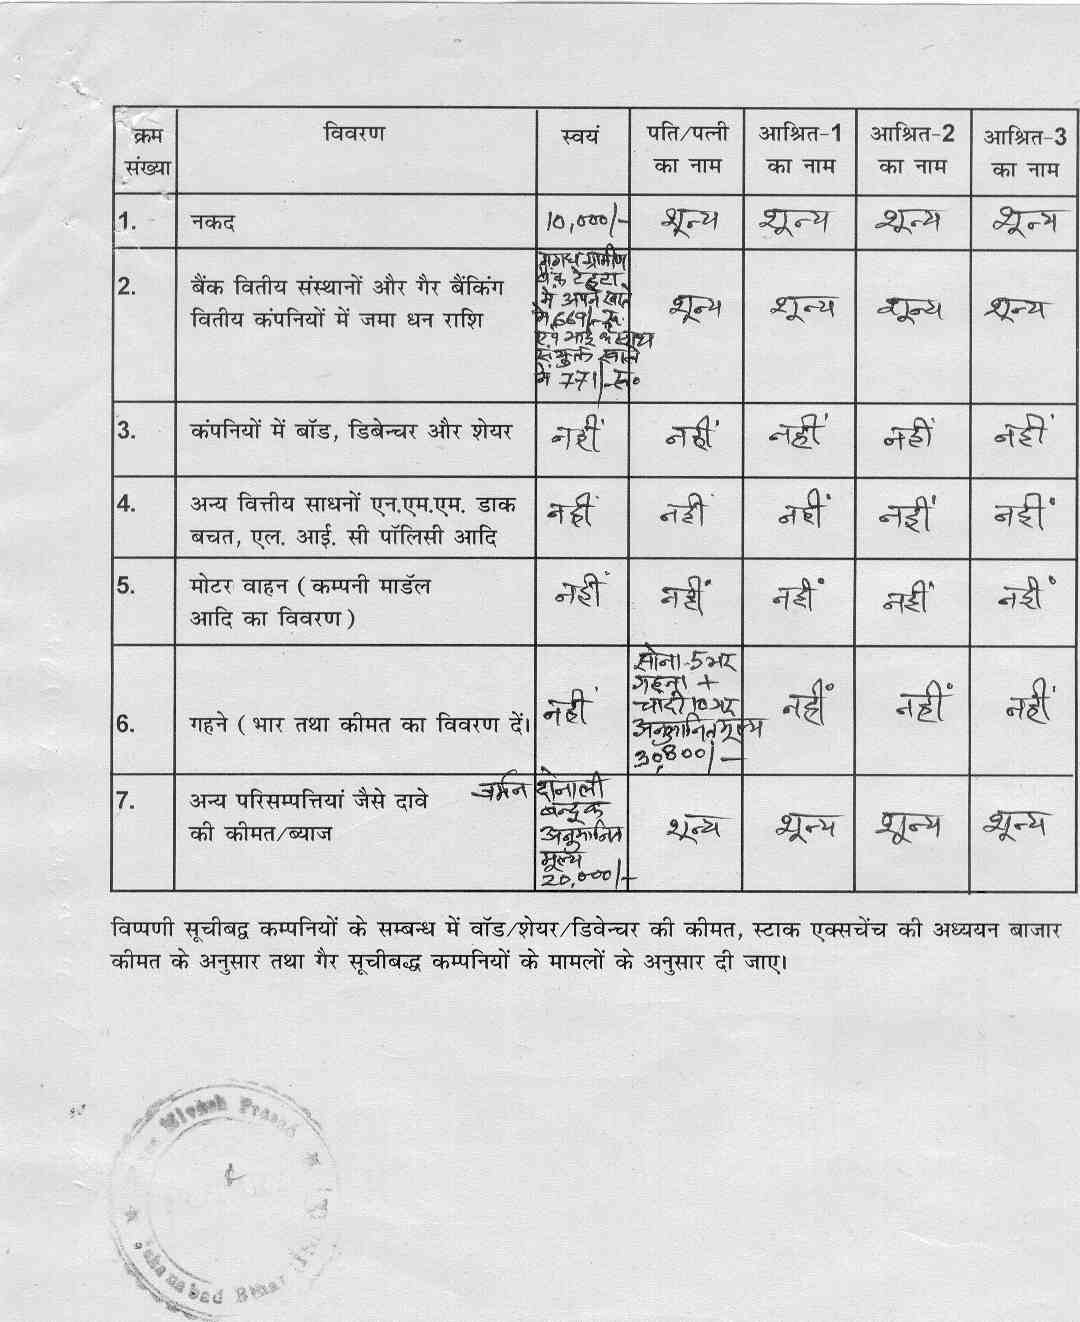 क्रम संख्या विवरण स्वयं पति/पत्नी का नाम आश्रित-1 का नाम आश्रित-2 का नाम आश्रित-3 का नाम
1. नकद 10,000/- शून्य शून्य शून्य शून्य
2. बैंक वितीय संस्थानों और गैर बैंकिंग
वितीय कंपनियों में जमा धन राशि
मगध ग्रामीण
बैंक टेहटा
में अपने खाते
में 669/- रू.
एवं भाई के साथ
संयुक्त खाते
में 771/- रू०
शून्य शून्य शून्य शून्य
3. कंपनियों में बॉड, डिबेन्चर और शेयर नहीं नहीं नहीं नहीं नहीं
4. अन्य वित्तीय साधनों एन.एम.एम. डाक
बचत, एल. आई. सी पॉलिसी आदि
नहीं नहीं नहीं नहीं नहीं
5. मोटर वाहन ( कम्पनी माडॅल
आदि का विवरण )
नहीं नहीं नहीं नहीं नहीं
6. गहने ( भार तथा कीमत का विवरण दें। नहीं
सोना-5 भर
गहना +
चांदी 10 भर
अनुमानित मूल्य
30,800/-
नहीं नहीं नहीं
7. अन्य परिसम्पत्तियां जैसे दावे
की कीमत/ब्याज
दोनाली
बन्दूक
अनुमानित
मूल्य
20,000/-
शून्य शून्य शून्य शून्य
विप्पणी सूचीबद्व कम्पनियों के सम्बन्ध में वॉड/शेयर/डिवेन्चर की कीमत, स्टाक एक्सचेंच की अध्ययन बाजार
कीमत के अनुसार तथा गैर सूचीबद्ध कम्पनियों के मामलों के अनुसार दी जाए।
Prasad
Bihar